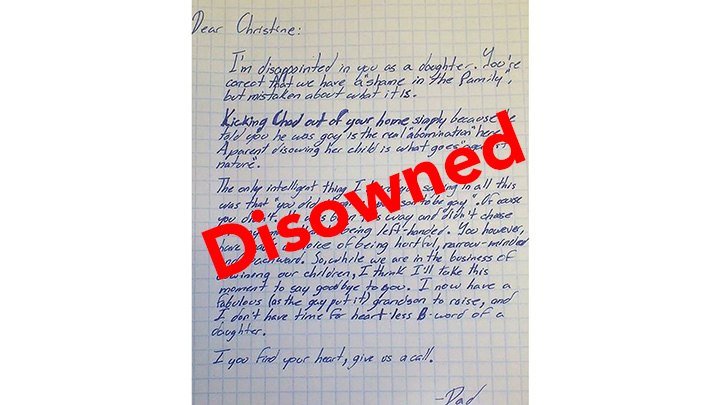 Dear Christine:
I'm disappointed in you as a daughter. You're
corect that we have a "shame in the family",
but mistaken about what it is.
Kicking Chad out of your home simply because he
told you he was gay is the real "abomination" here.
A parent disowning her child is what goes "against
nature".
The only intelligent thing I saying in all this
was that "you did son to be gay". Of course
you didn't. born this way and didn't choose
being left-handed. You however,
have choice of being hurtful, narrow-minded
backward. So, while we are in the business of
our children, I think I'll take this
moment to say goodbye to you. I now have a
fabulous (as the gay put it) grandson to raise, and
I don't have time for heart-less B-word of a
daughter.
I you find your heart, give us a call.
-Dad
Disowned